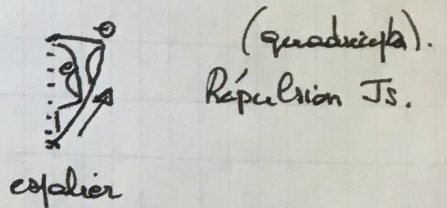 (quadriceps).
Répulsion Js.
espalier